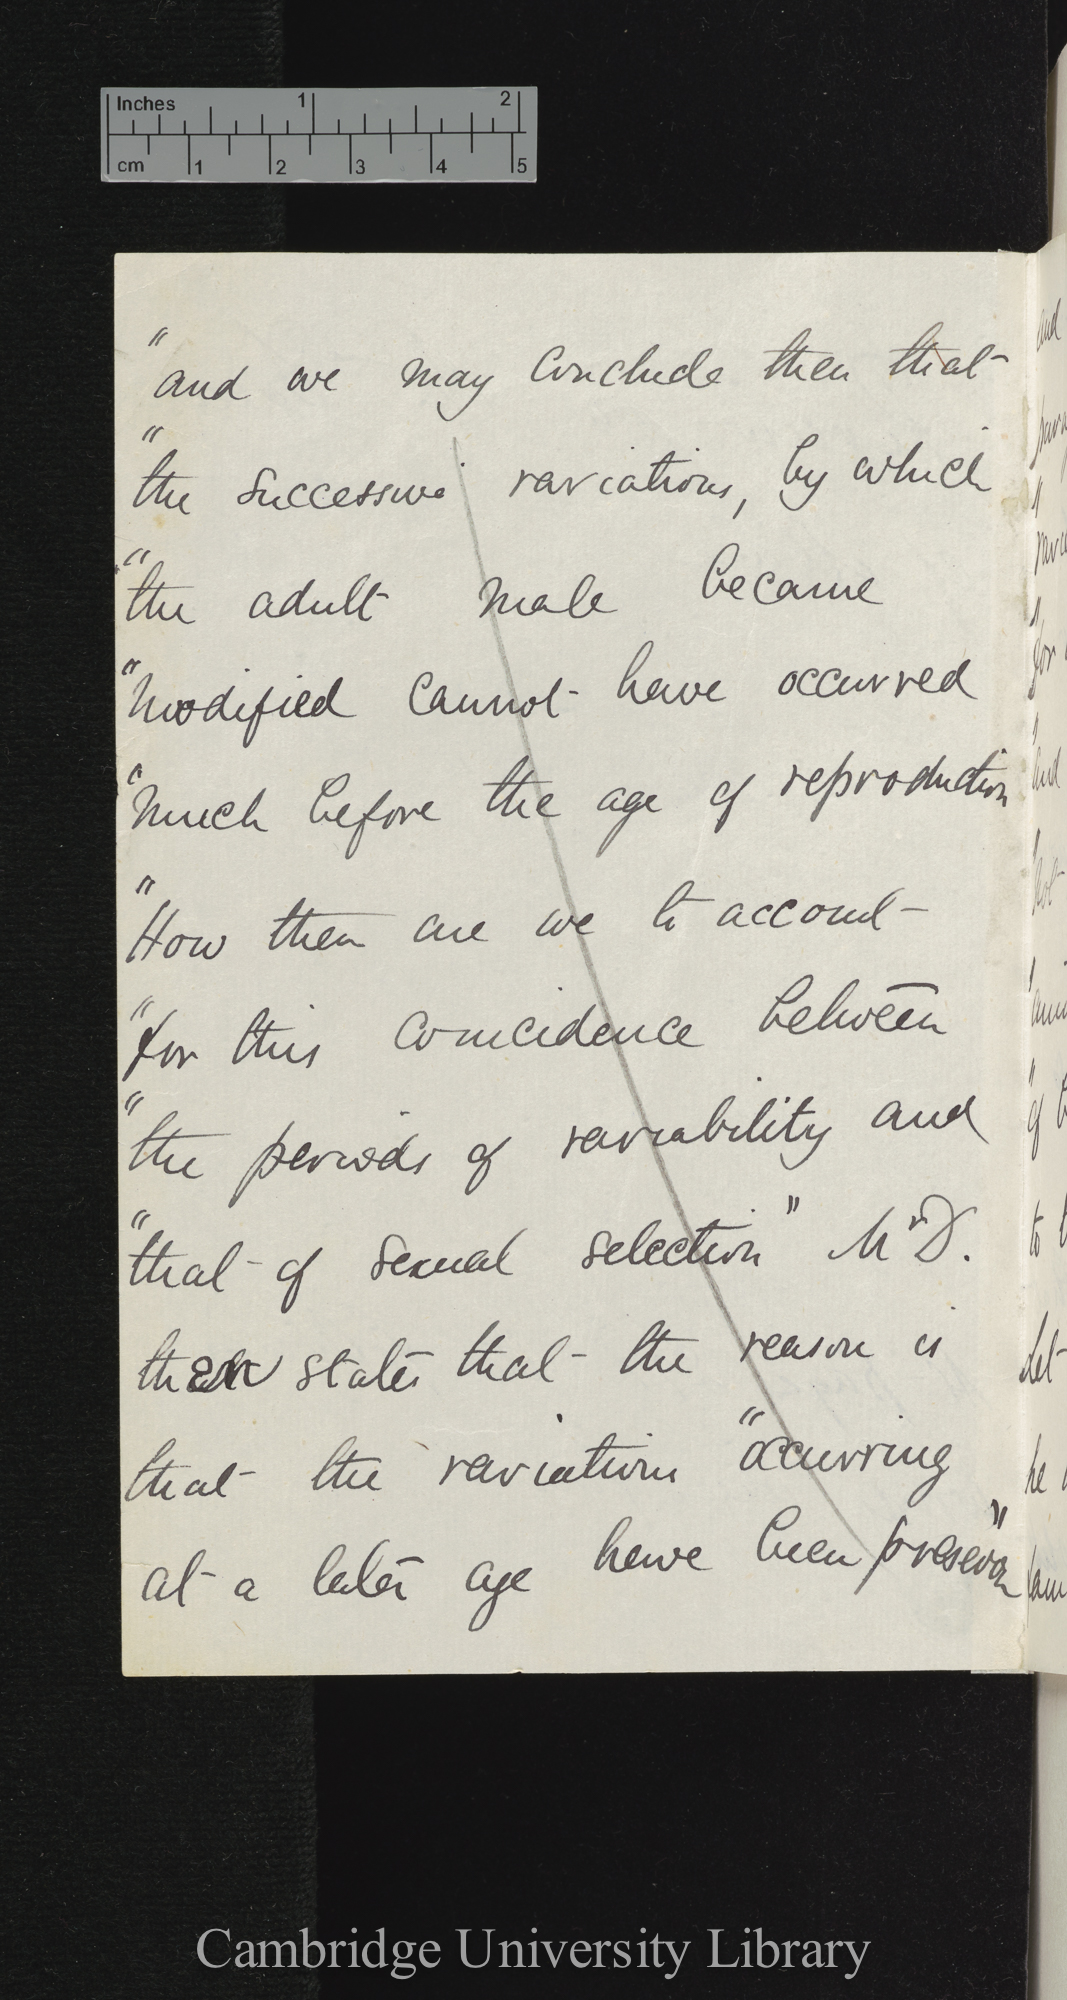 Inches 1 2
cm 1 2 3 4 5
"and we may conclude then that
"the successive variations, by which
"the adult male became
"modified cannot have occurred
"much before the age of reproduction
"How then are we to account
"for this coincidence between
"the periods of variability and
"that of sexual selection" Mr D.
then states that the reason is
that the variations "occurring
at a later age have been preserved"
and
for
and
not
of
to
Let
he
Cambridge University Library